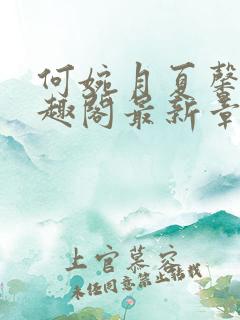 何婉月夏馨
趣阁最新章
上官慕容
未经同意禁止转载